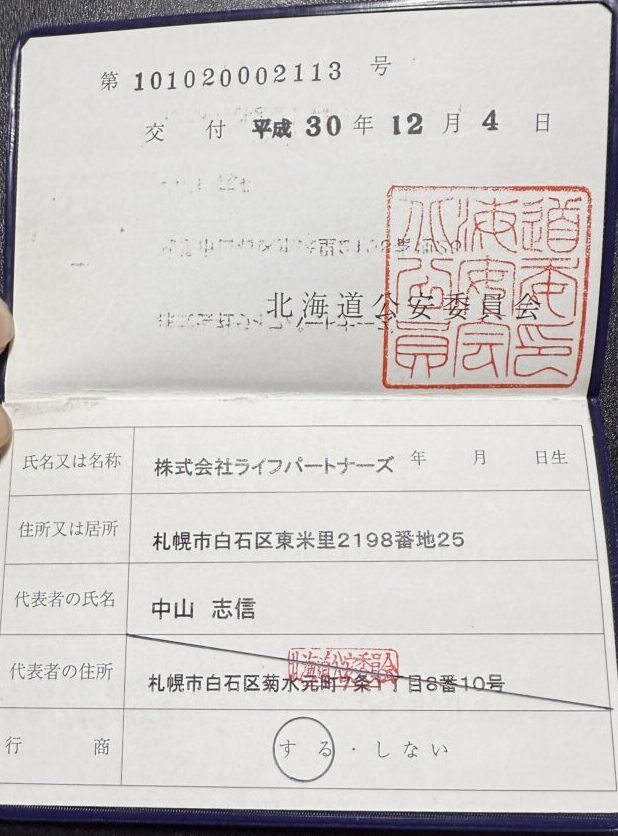 第 101020002113 号
交付 平成 30 年 12 月 4 日
北海道公安委員会
北海道公安委員会印
氏名又は名称 株式会社ライフパートナーズ 年 月 日生
住所又は居所 札幌市白石区東米里2198番地25
代表者の氏名 中山 志信
北海道公安委員会
代表者の住所 札幌市白石区菊水元町7条1丁目8番10号
行商 する・しない